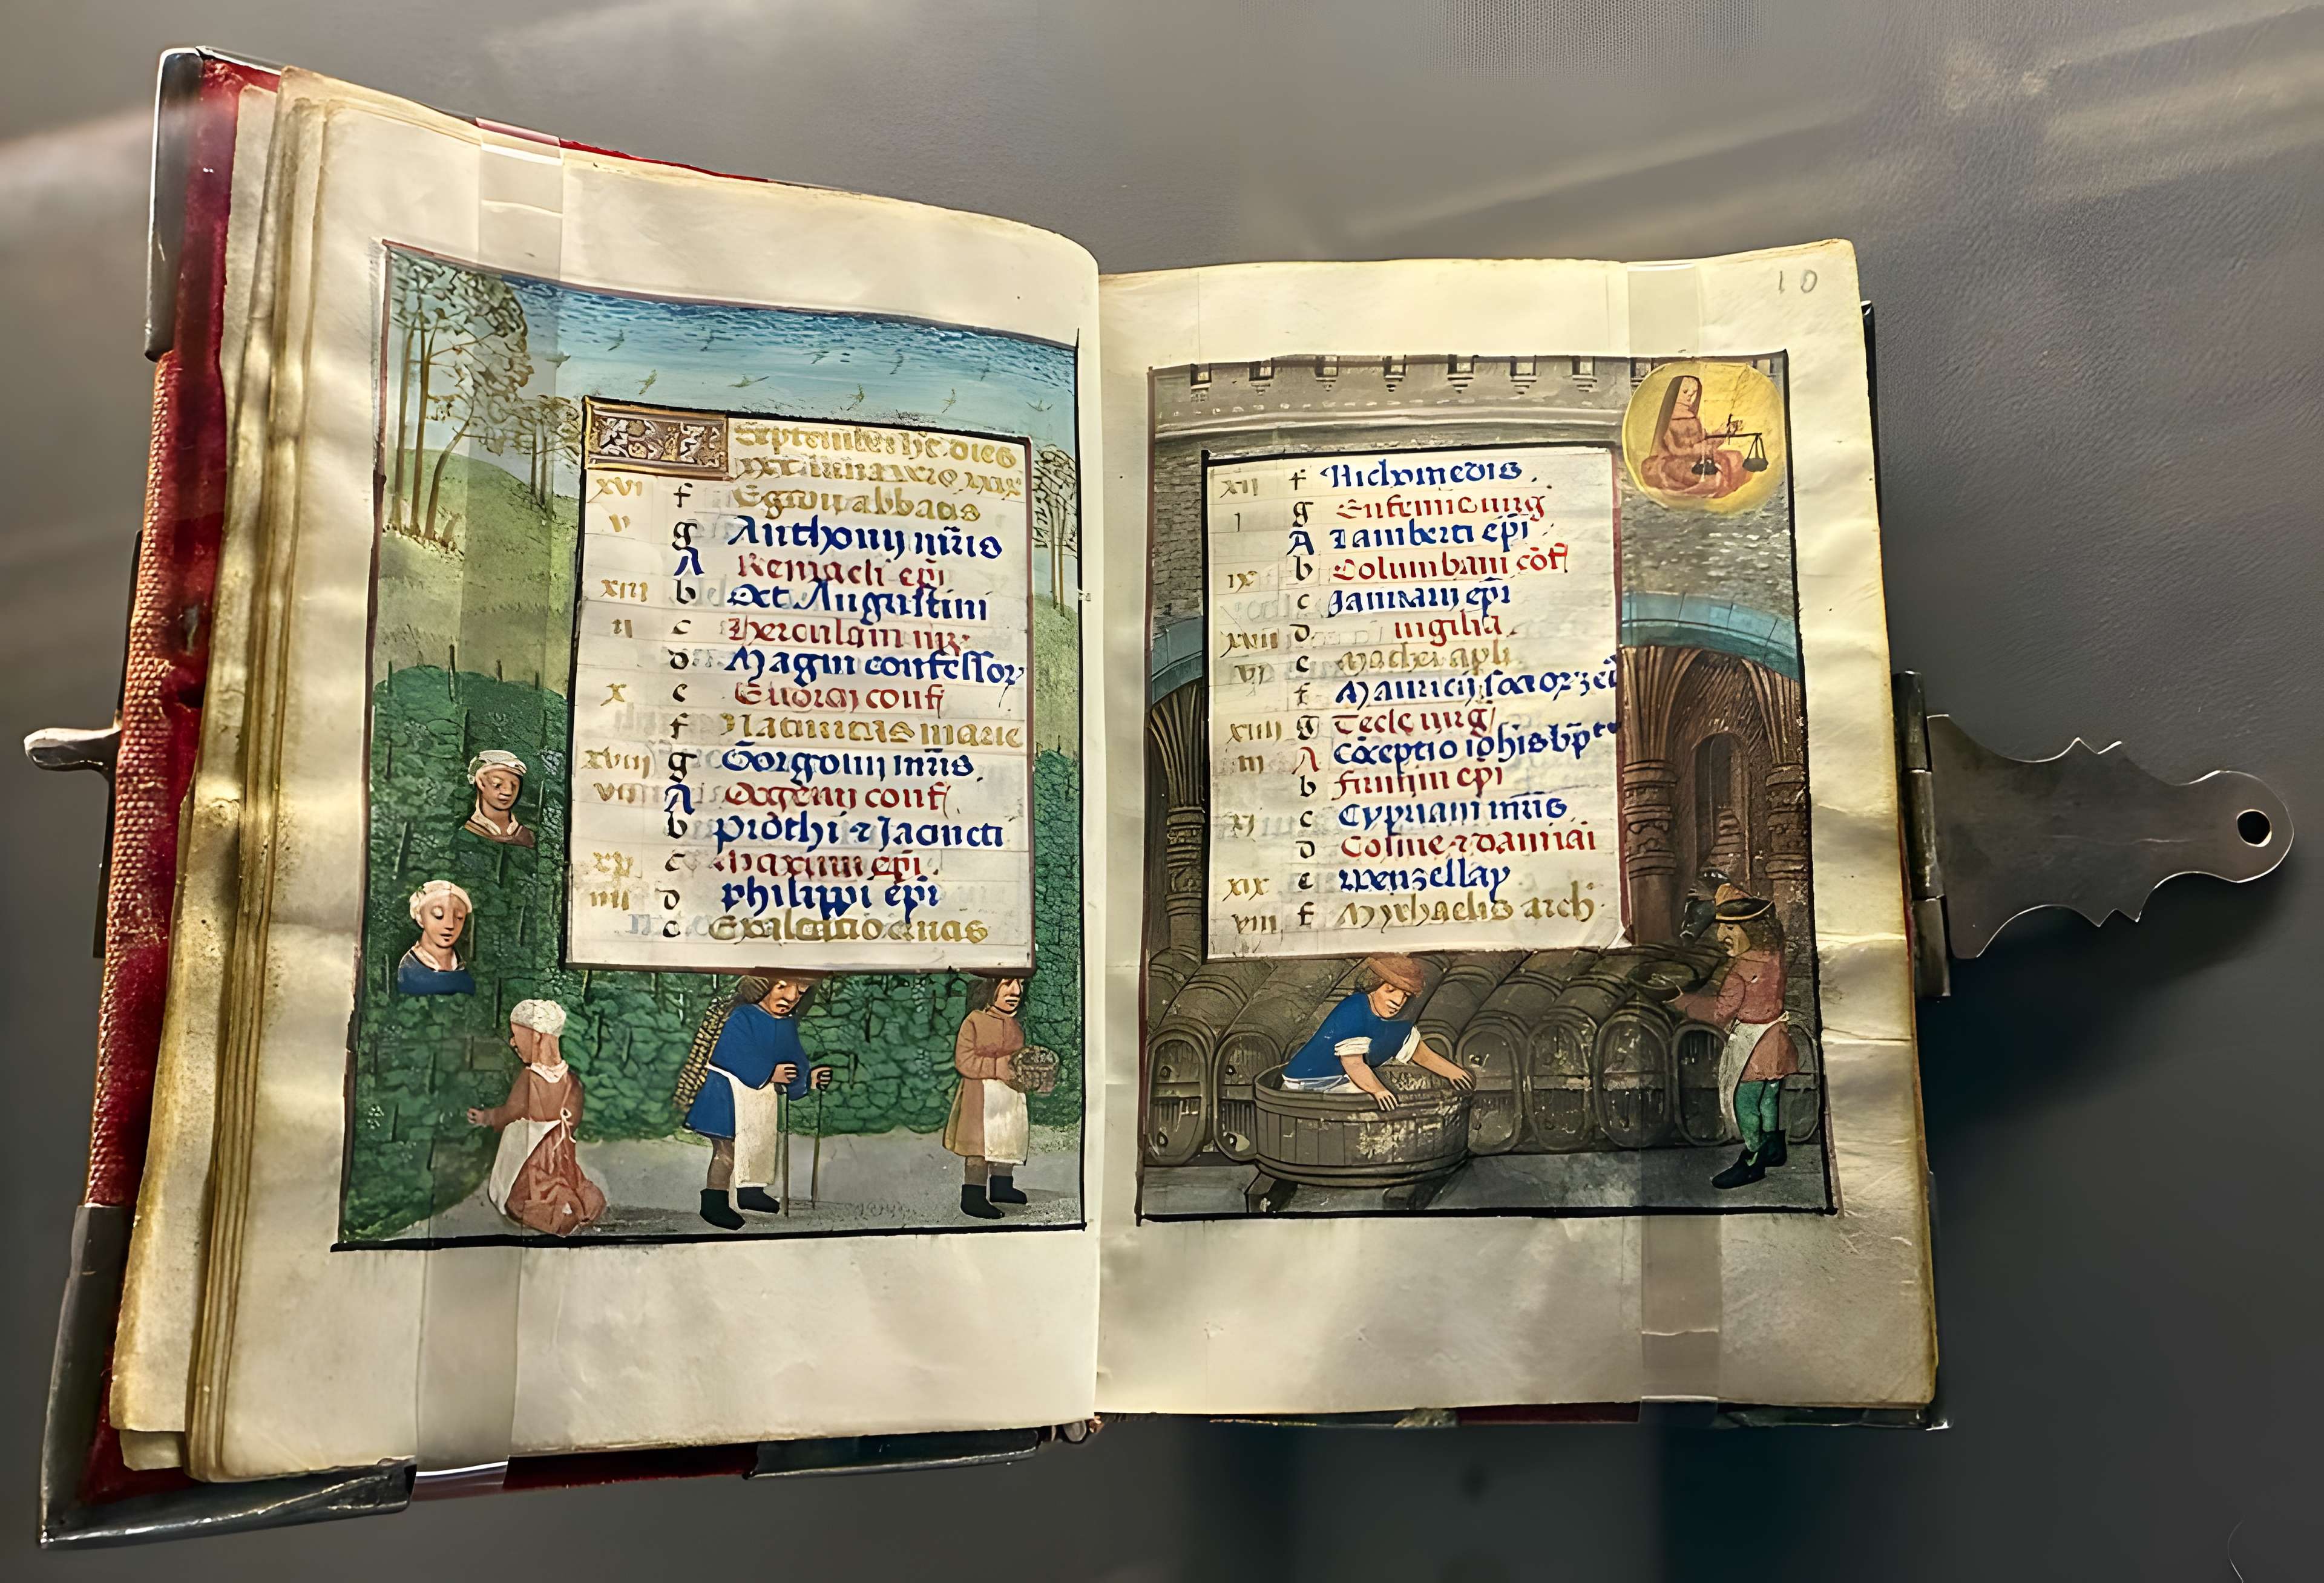 September hc dies
xvi f Egidii abbatis
v g Anthonij mris
A Remacli epi
xiii b Oct Augustini
ii c Herculani mr
d Magni confessor
x e Euorcij conf
f Natiuitas marie
xviii g Gorgonij mris
vii A conf
b prothi ⁊ Jacincti
xv c Maximi epi
iiii d philippi epi
e Exaltatio crucis
10
xii f Nichomedis
i g Eufemie uirg
A Lamberti epi
ix b Columbani cof
c Januarij epi
xvii d uigilia
vi e Mathei apli
f Mauricij socior
xiiii g Tecle uirg
iii A Cocepcio iohis bpt
b firmini epi
xi c Cypriani mris
d Cosme ⁊ damiai
xix e wenzellay
viii f Mychaelis arch